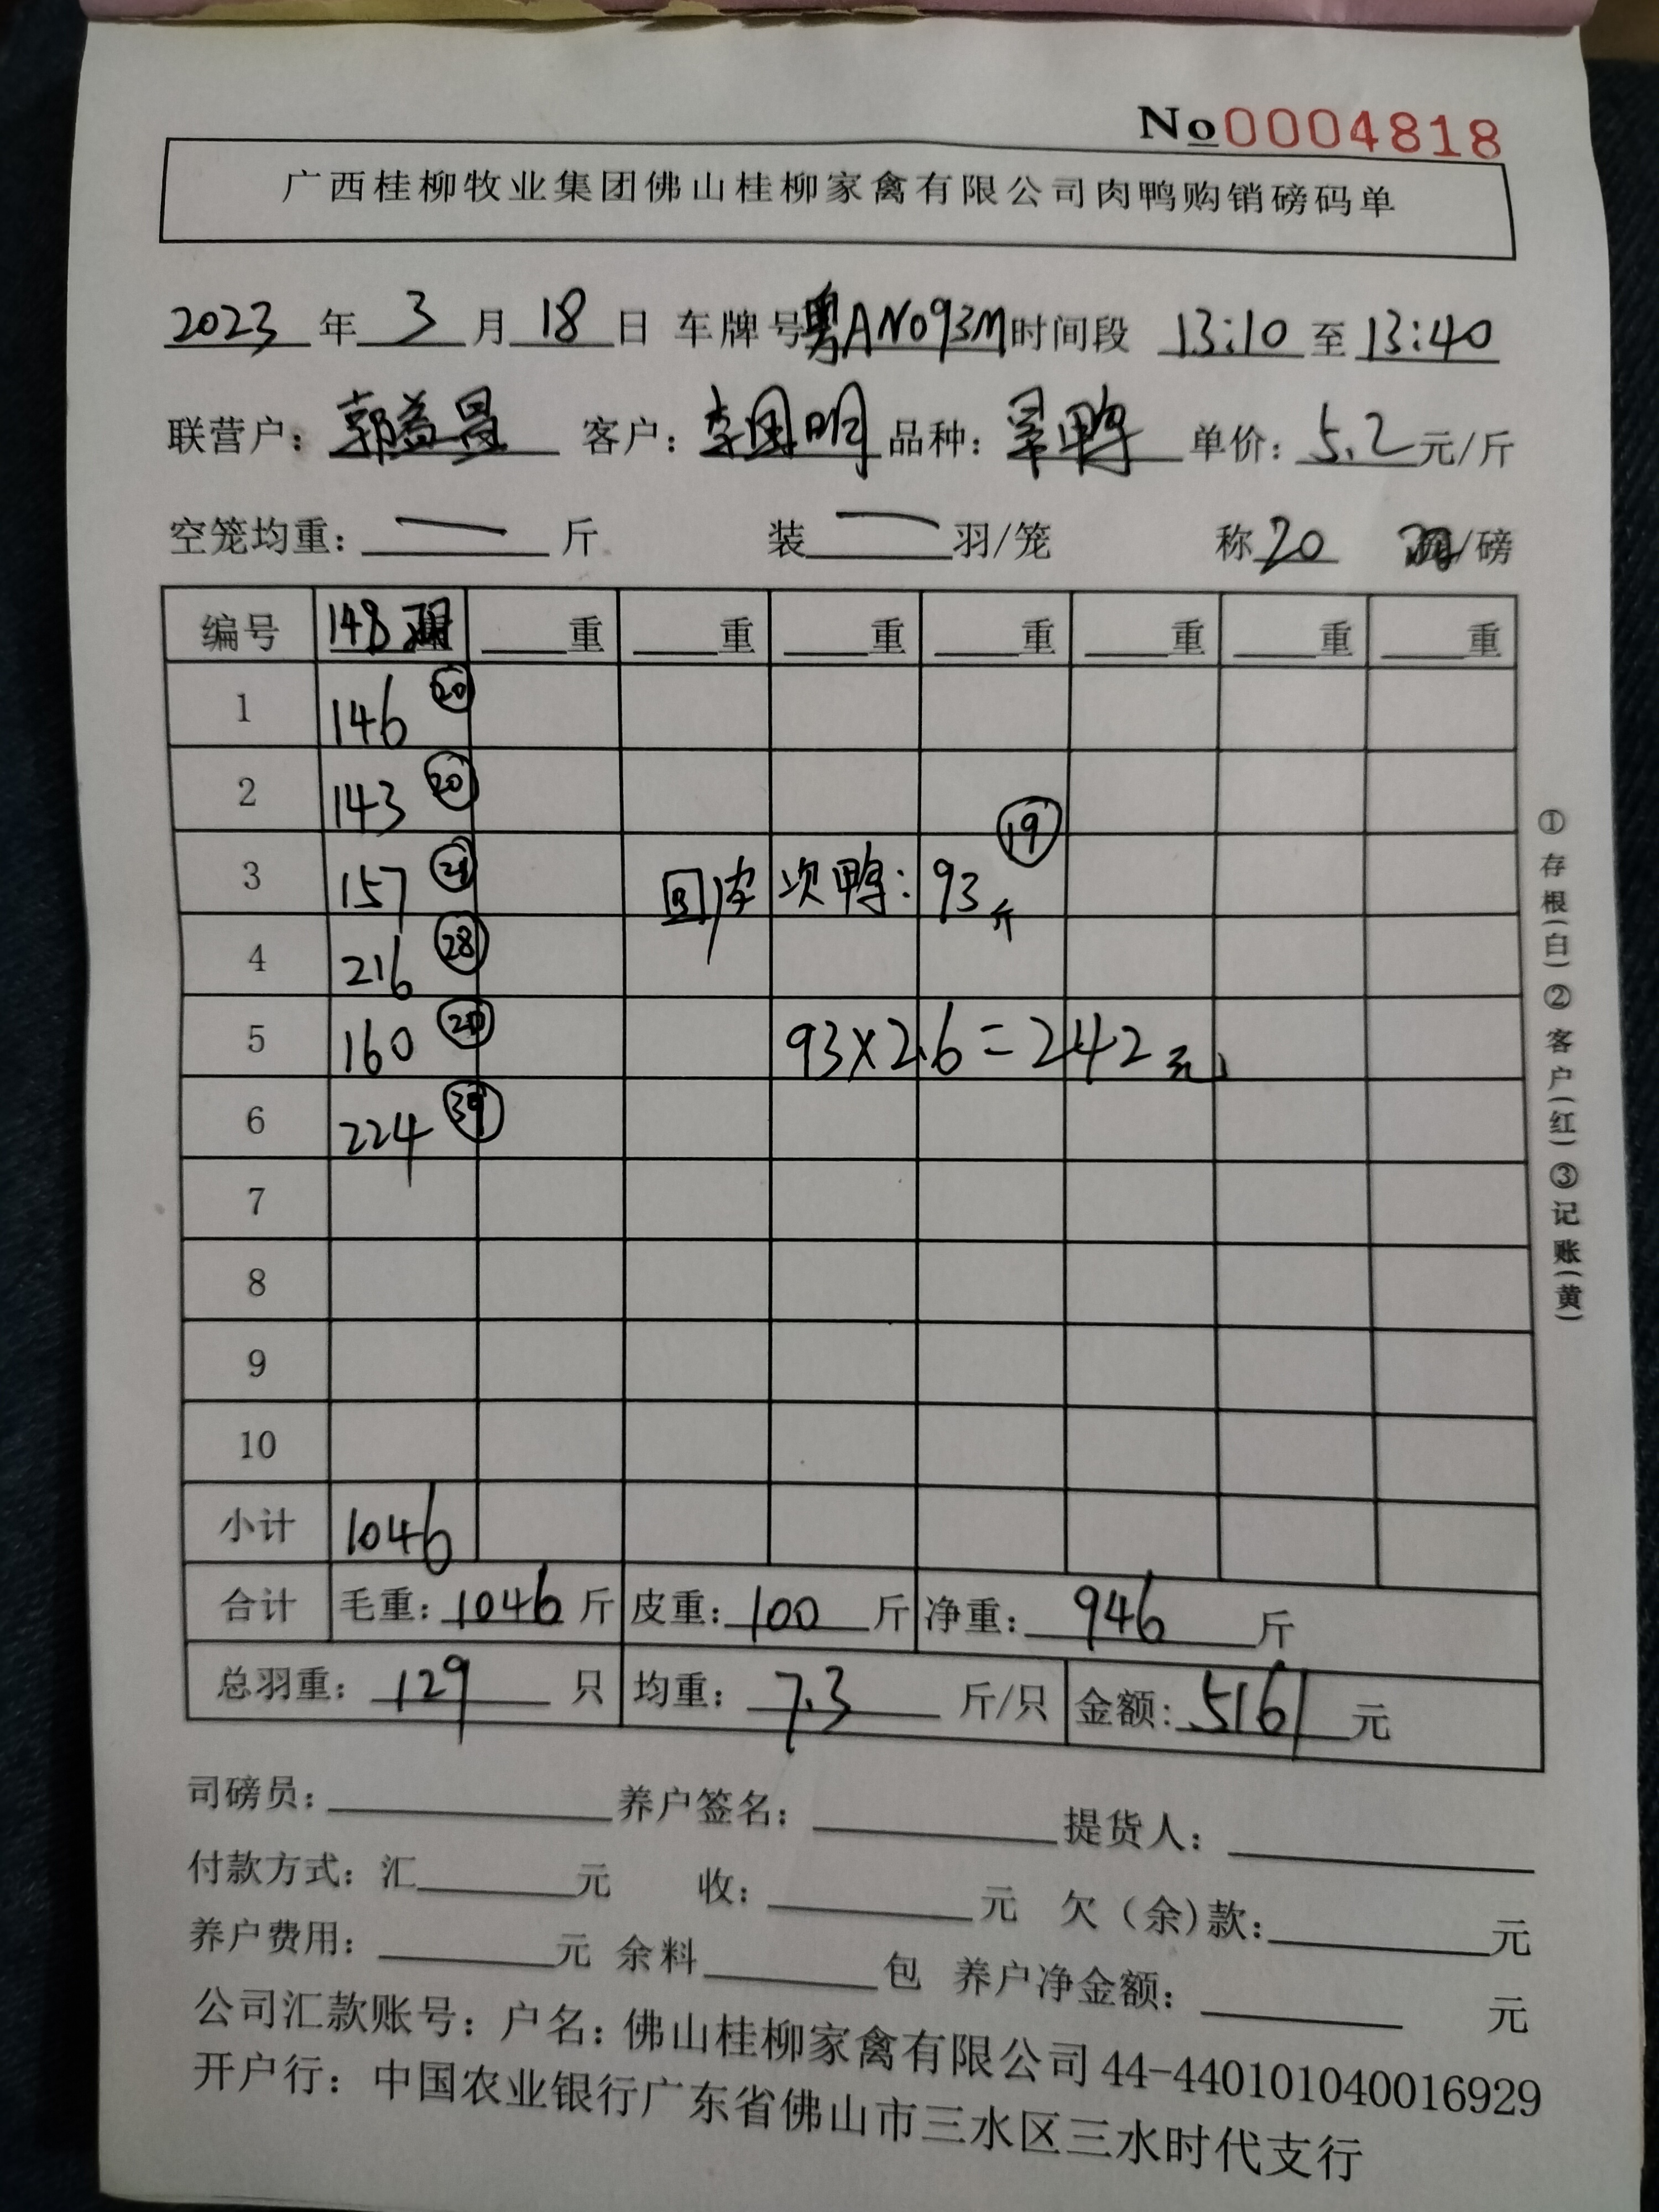 No 0004818
广西桂柳牧业集团佛山桂柳家禽有限公司肉鸭购销磅码单
2023 年 3 月 18 日 车牌号 粤AN093M 时间段 13:10 至 13:40
联营户： 郭益 客户： 李国明 品种： 鸭 单价： 5.2 元/斤
空笼均重： — 斤 装 — 羽/笼 称 20 /磅
编号 148 重 重 重 重 重 重 重
1 146 20
2 143 20
19
3 157 21 回收 次鸭： 93斤
4 216 28
5 160 93×2.6=242元
6 224
7
8
9
10
小计 1046
合计 毛重： 1046 斤 皮重： 100 斤 净重： 946 斤
总羽重： 129 只 均重： 7.3 斤/只 金额： 5161 元
司磅员： 养户签名： 提货人：
付款方式：汇 元 收： 元 欠（余）款： 元
养户费用： 元 余料 包 养户净金额： 元
公司汇款账号：户名：佛山桂柳家禽有限公司 44-440101040016929
开户行：中国农业银行广东省佛山市三水区三水时代支行
①存根(白)②客户(红)③记账(黄)